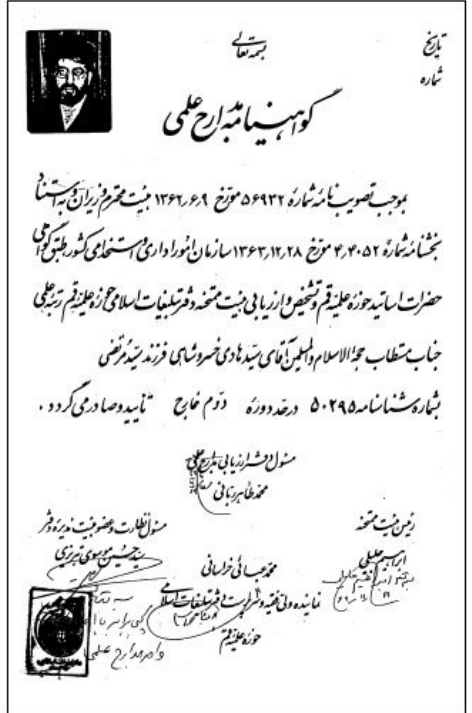 بسمه تعالی
تاریخ
شماره
گواهینامه مدارج علمی
بموجب تصویب نامه شماره ۵۶۹۳۲ مورّخ ۱۳۶۲٫۶٫۹ هیئت محترم وزیران و به استناد
بخشنامه شماره ۴٫۴۰۵۲ مورّخ ۱۳۶۳٫۱۲٫۲۸ سازمان امور اداری و استخدامی کشور طبق گواهی
حضرات اساتید حوزه علمیّه قم و تشخیص و ارزیابی هیئت ممتحنه دفتر تبلیغات اسلامی حوزه علمیّه قم رتبه علمی
جناب مستطاب حجة الاسلام والمسلمین آقای سیّد هادی خسروشاهی فرزند سیّد مرتضی
بشماره شناسنامه ۵۰۲۹۵ در حدّ دوره دوّم خارج تأیید و صادر می گردد .
مسئول دفتر ارزیابی مدارج علمی
محمّد طاهر ربّانی
رئیس هیئت ممتحنه
ابراهیم جلیلی
مسئول نظارت و عضو هیئت مدیره دفتر
سیّد حسین موسوی تبریزی
محمّد عبائی خراسانی
نماینده ولی فقیه و سرپرست دفتر تبلیغات اسلامی
حوزه علمیّه قم